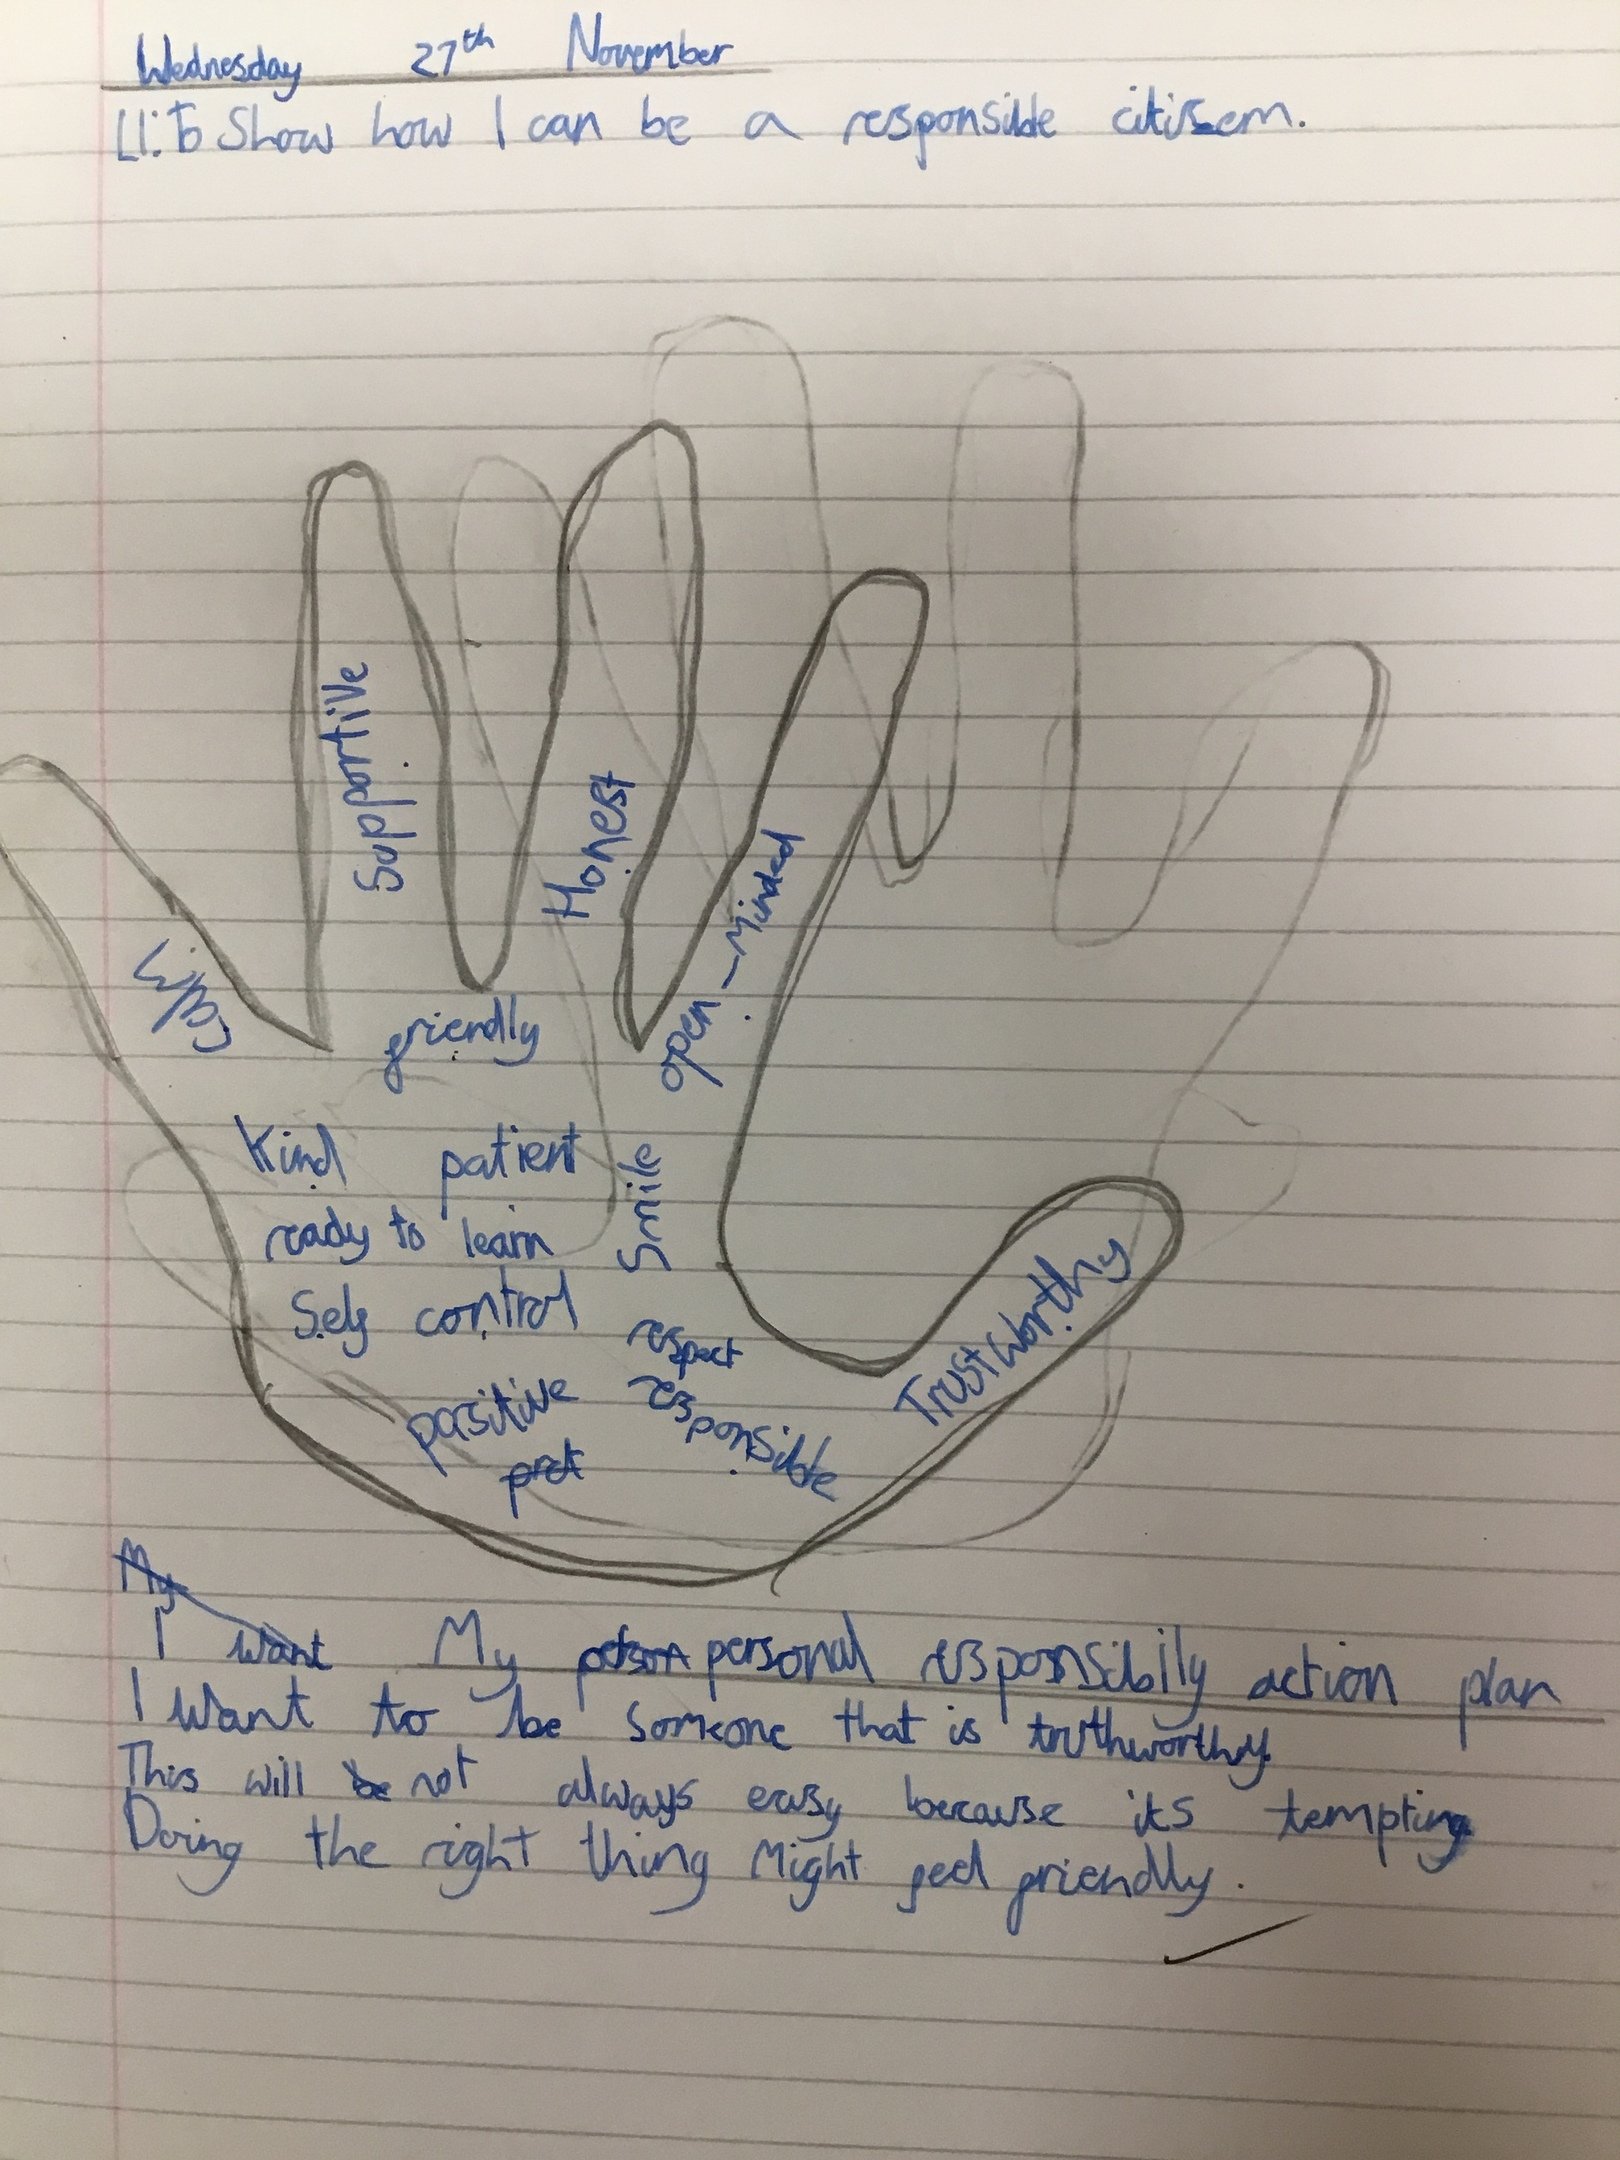 Wednesday 27th November
LI: To Show how I can be a responsible citisem.
Supportive
Honest
open-Minded
friendly
Kind patient
ready to learn
Smile
Self control
respect
responsible
positive
Trustworthy
My
I want My personal responsibily action plan
I want to be someone that is truthworthy.
This will be not always easy because its tempting
Doing the right thing Might feel friendly.